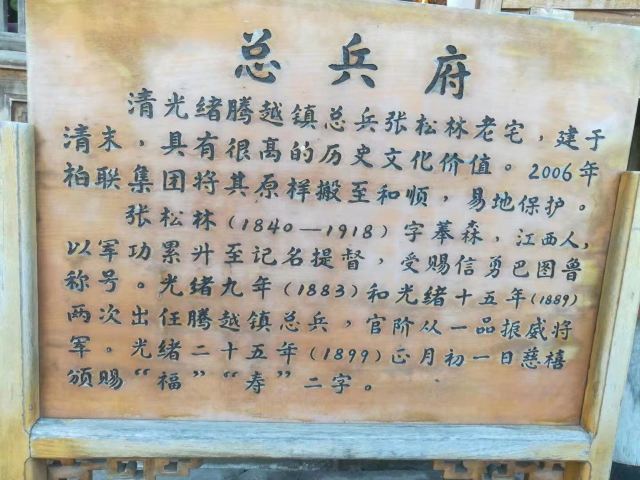 总兵府
清光绪腾越镇总兵张松林老宅，建于
清末，具有很高的历史文化价值。2006年
柏联集团将其原样搬至和顺，易地保护。
张松林（1840—1918）字菶森，江西人，
以军功累升至记名提督，受赐信勇巴图鲁
称号。光绪九年（1883）和光绪十五年（1889）
两次出任腾越镇总兵，官阶从一品振威将
军。光绪二十五年（1899）正月初一日慈禧
颁赐“福”“寿”二字。